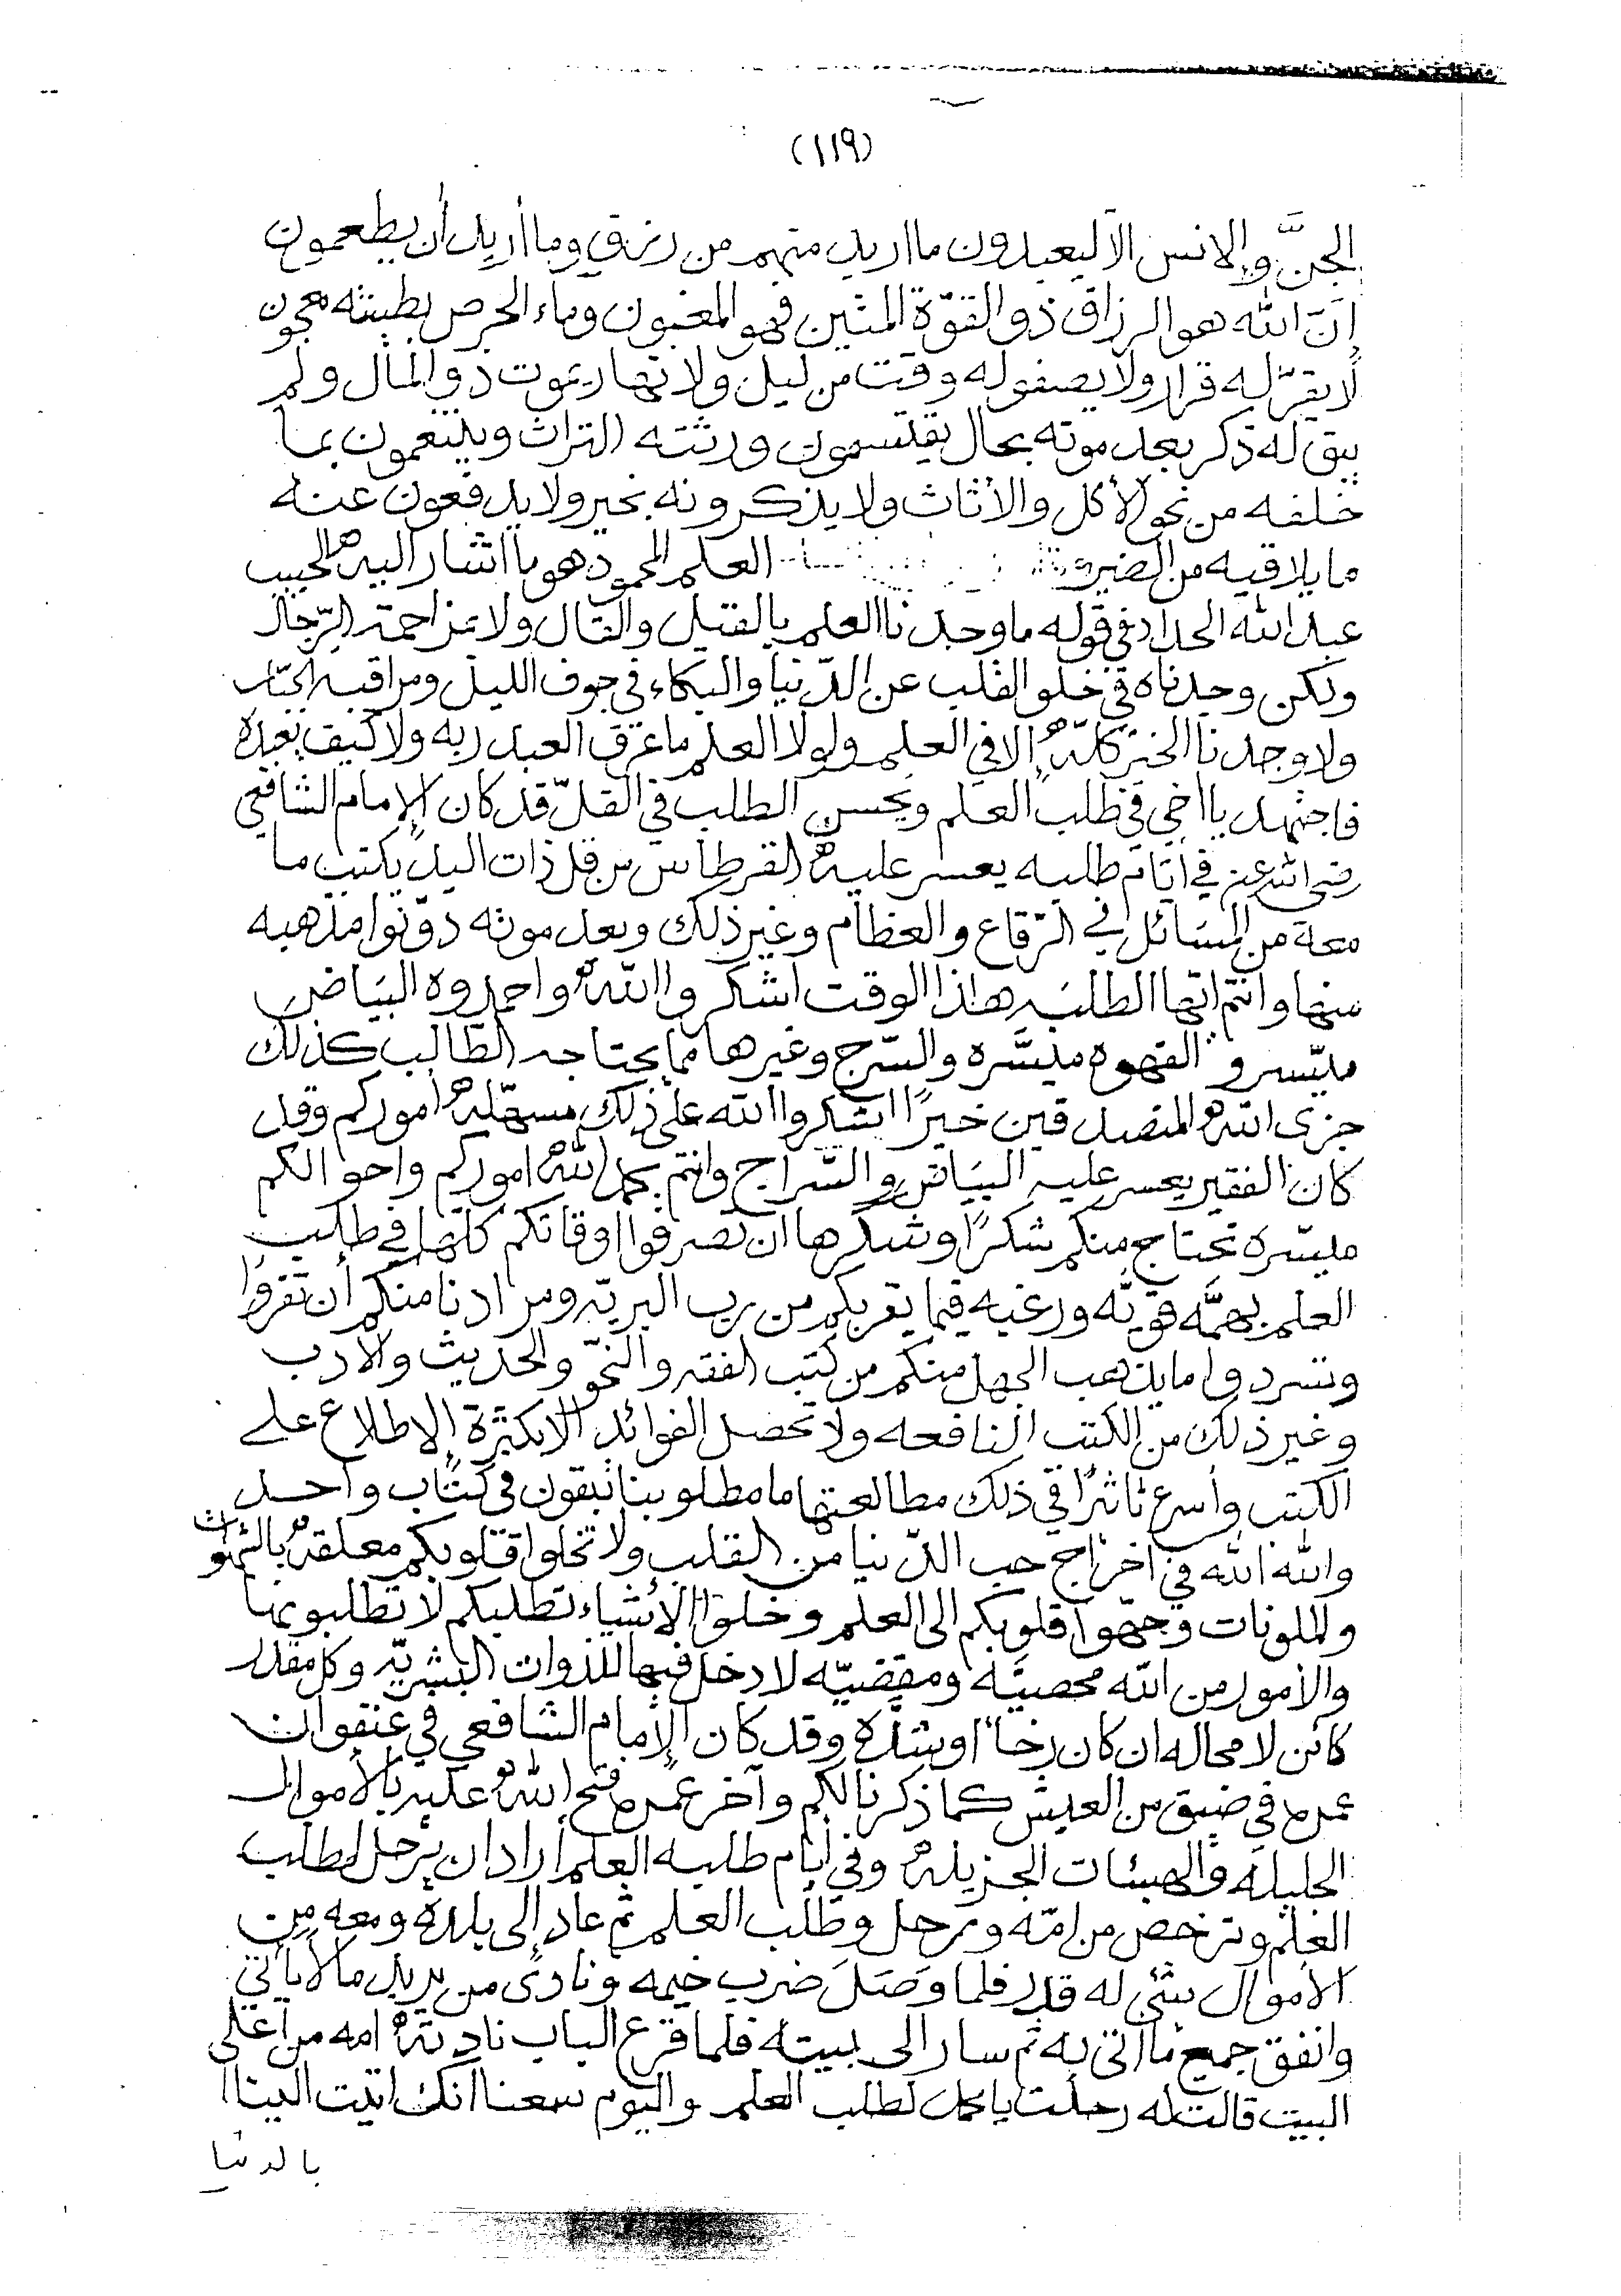 (١١٩)
الجنَّ والإنس الا ليعبدون ما اريد منهم من رزق وما أريد أن يطعمون
إنّ الله هو الرزاق ذو القوّة المتين فهو المغبون وماء الحرص بطينته معجون
لا يقرّ له قرار ولا يصفو له وقت من ليل ولا نهار يموت ذو المال ولم
يبق له ذكر بعد موته بحال يقتسمون ورثته التراث ويتنعمون بما
خلفه من نحو الأكل والأثاث ولا يذكرونه بخير ولا يدفعون عنه
ما يلاقيه من الضير العلم المحمود هو ما اشار اليه الحبيب
عبد الله الحداد في قوله ما وجدنا العلم بالقيل والقال ولا بمزاحمة الرّجال
ولكن وجدناه في خلو القلب عن الدّنيا والبكاء في جوف الليل ومراقبة الجبّار
ولا وجدنا الخير كلّه إلا في العلم ولولا العلم ما عرف العبد ربه ولا كيف يعبده
فاجتهد يا اخي في طلب العلم ويحسن الطلب في القلّ قد كان الإمام الشافعي
رضي الله عنه في ايّام طلبه يعسر عليه القرطاس من قل ذات اليد يكتب ما
معه من المسَائل في الرّقاع والعظام وغير ذلك وبعد موته دوّنوا مذهبه
منها وانتم ايّها الطلبَه هذا الوقت اشكروا الله واحمدوه البيَاض
ميسّر والقهوه ميسَّره والسّرج وغيرها مما يحتاجه الطالب كذلك
جزى الله المتصدقين خيرًا اشكروا الله على ذلك مسهّله أموركم وقد
كان الفقير يعسر عليه البيَاض والسّراج وانتم بحمد الله اموركم واحوالكم
ميسّرة تحتاج منكم شكرًا وشكرها ان تصرفوا اوقاتكم كلها في طلب
العلم بهمَّه قويّه ورغبه فيما يقربكم من رب البريّه ومرادنا منكم أن تقرؤا
وتسردوا ما يذهب الجهل منكم من كتب الفقه والنحو والحديث والأدب
وغير ذلك من الكتب النافعه ولا تحصل الفوائد الا بكثرة الإطلاع على
الكتب وأسرع تاثيرًا في ذلك مطالعتها ما مطلوبنا تبقون في كتاب واحد
والله الله في اخراج حب الدّنيا من القلب ولا تخلوا قلوبكم معلقه بالشهوات
والملونات وجّهوا قلوبكم الى العلم وخلوا الأشياء تطلبكم لا تطلبونها
والأمور من الله محصيَّه ومقضيّه لا دخل فيها للذوات البشريّه وكل مقدر
كائن لا محاله ان كان رخاً او شدّة وقد كان الإمام الشافعي في عنفوان
عمره في ضيق من العيش كما ذكرنا لكم وآخر عمره فتح الله عليه بالأموال
الجليلة والهبئات الجزيله وفي أيام طلبه العلم أراد ان يرحل لطلب
العلم وترخص من امّه ورحل وطلب العلم ثم عاد إلى بلده ومعه من
الأموال شئ له قدر فلما وَصَلَ ضرب خيمه ونادى من يريد مالاً يأتي
وانفق جميع ما اتى به ثم سار الى بيته فلما قرع الباب نادته امه من أعلى
البيت قالت له رحلت يا محمد لطلب العلم واليوم سمعنا انك اتيت الينا
بالدنيا